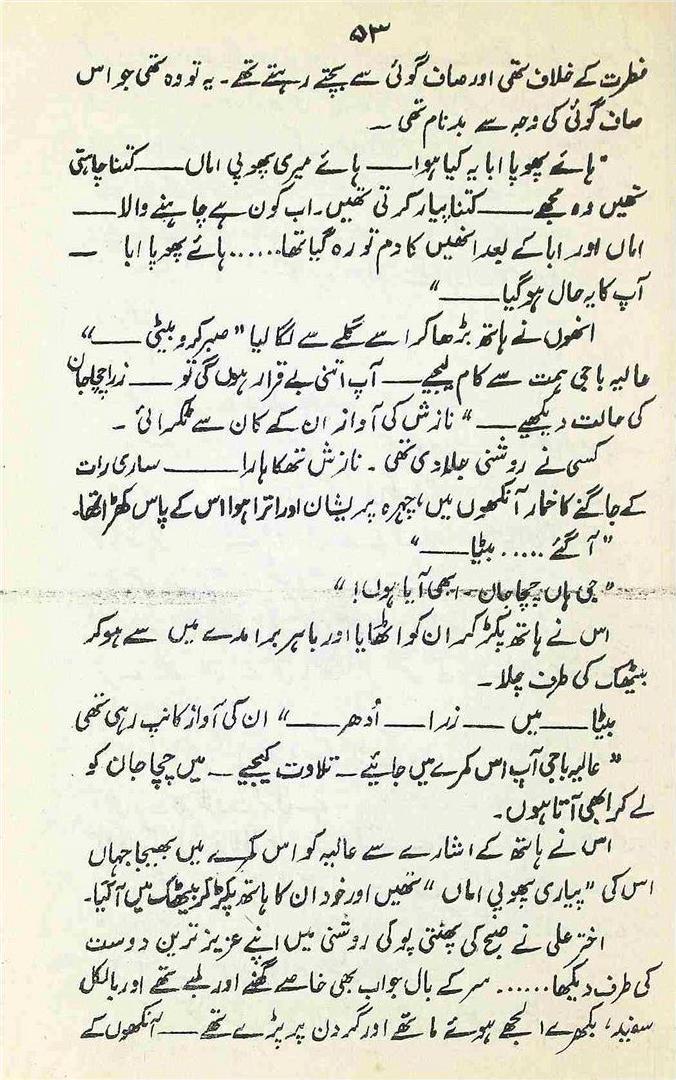 ۵۳
فطرت کے خلاف تھی اور صاف گوئی سے بچتے رہتے تھے۔ یہ تو وہ تھی جو اس
صاف گوئی کی وجہ سے بدنام تھی ۔
"ہائے پھوپا ابا یہ کیا ہوا—— ہائے میری پھوپی اماں——کتنا چاہتی
تھیں وہ مجھے——کتنا پیار کرتی تھیں۔ اب کون ہے چاہنے والا——
اماں اور ابا کے بعد انھیں کا دم تو رہ گیا تھا...... ہائے پھوپا ابا —
آپ کا یہ حال ہوگیا——"
انھوں نے ہاتھ بڑھا کر اسے گلے سے لگا لیا "صبر کرو بیٹی ——"
عالیہ باجی ہمت سے کام لیجیے—— آپ اتنی بے قرار ہوں گی تو —— زرا چچا جان
کی حالت دیکھیے——" نازش کی آواز ان کے کان سے ٹکرائی ۔
کسی نے روشنی جلا دی تھی ۔ نازش تھکا ہارا —— ساری رات
کے جاگنے کا خمار آنکھوں میں، چہرہ پریشان اور اترا ہوا اس کے پاس کھڑا تھا۔
"آ گئے ..... بیٹا——"
"جی ہاں چچا جان۔ ابھی آیا ہوں!"
اس نے ہاتھ پکڑ کر ان کو اٹھایا اور باہر برامدے میں سے ہو کر
بیٹھک کی طرف چلا۔
بیٹا——میں —— زرا—— اُدھر ——" ان کی آواز کانپ رہی تھی
"عالیہ باجی آپ اس کمرے میں جائیے — تلاوت کیجیے — میں چچا جان کو
لے کر ابھی آتا ہوں۔
اس نے ہاتھ کے اشارے سے عالیہ کو اس کمرے میں بھیجا جہاں
اس کی "پیاری پھوپی اماں" تھیں اور خود ان کا ہاتھ پکڑ کر بیٹھک میں آ گیا۔
اختر علی نے صبح کی پھٹتی پو کی روشنی میں اپنے عزیز ترین دوست
کی طرف دیکھا...... سر کے بال جو اب بھی خاصے گھنے اور لمبے تھے اور بالکل
سفید، بکھرے الجھے ہوئے ماتھے اور گردن پر پڑے تھے —— آنکھوں کے